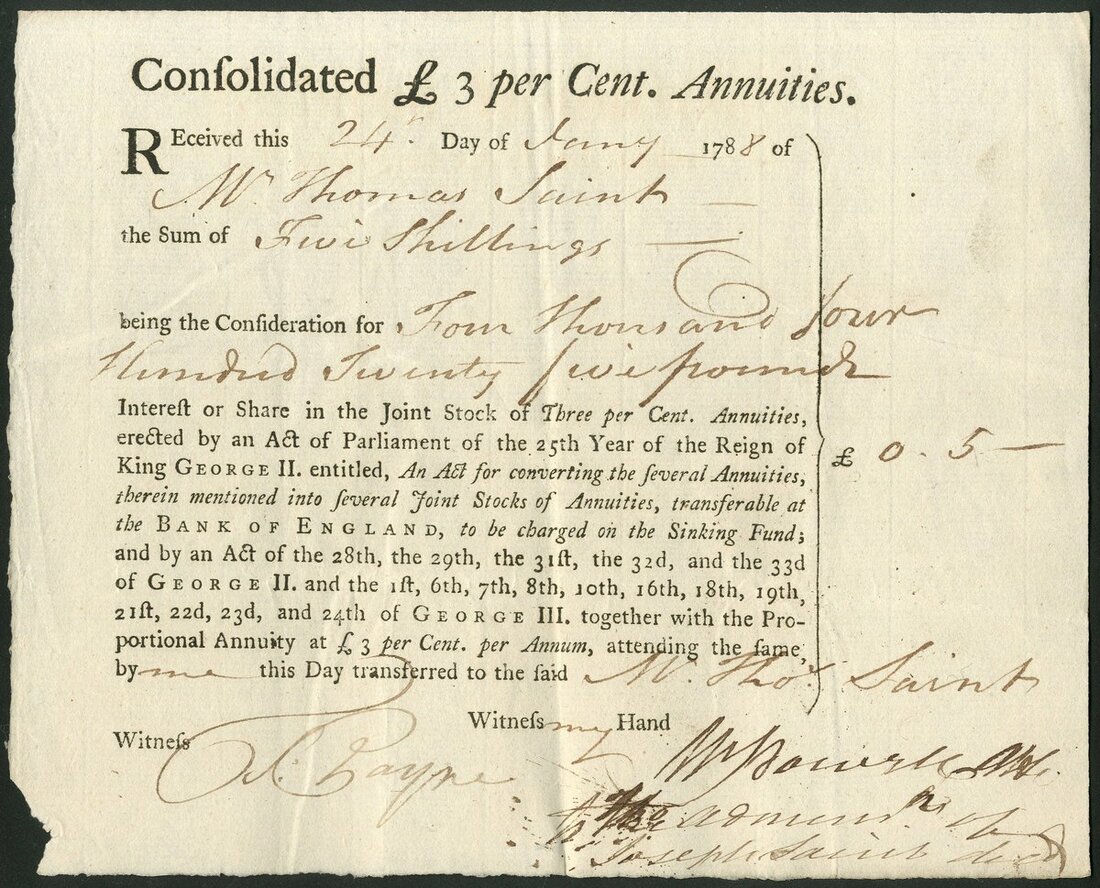 Conſolidated £ 3 per Cent. Annuities.
REceived this 24th. Day of Jany 1788 of
Mr. Thomas Saint
the Sum of Five Shillings
being the Conſideration for Four Thousand four
Hundred Twenty five pounds
Intereſt or Share in the Joint Stock of Three per Cent. Annuities,
erected by an Act of Parliament of the 25th Year of the Reign of
King GEORGE II. entitled, An Act for converting the ſeveral Annuities,
therein mentioned into ſeveral Joint Stocks of Annuities, transferable at
the BANK OF ENGLAND, to be charged on the Sinking Fund;
and by an Act of the 28th, the 29th, the 31ſt, the 32d, and the 33d
of GEORGE II. and the 1ſt, 6th, 7th, 8th, 10th, 16th, 18th, 19th,
21ſt, 22d, 23d, and 24th of GEORGE III. together with the Pro-
portional Annuity at £ 3 per Cent. per Annum, attending the ſame,
£ 0. 5 —
by me this Day transferred to the ſaid Mr. Thos. Saint
Witneſs my Hand
Witneſs Payne
Wm Powell
to the Admin
Joseph Saint decd